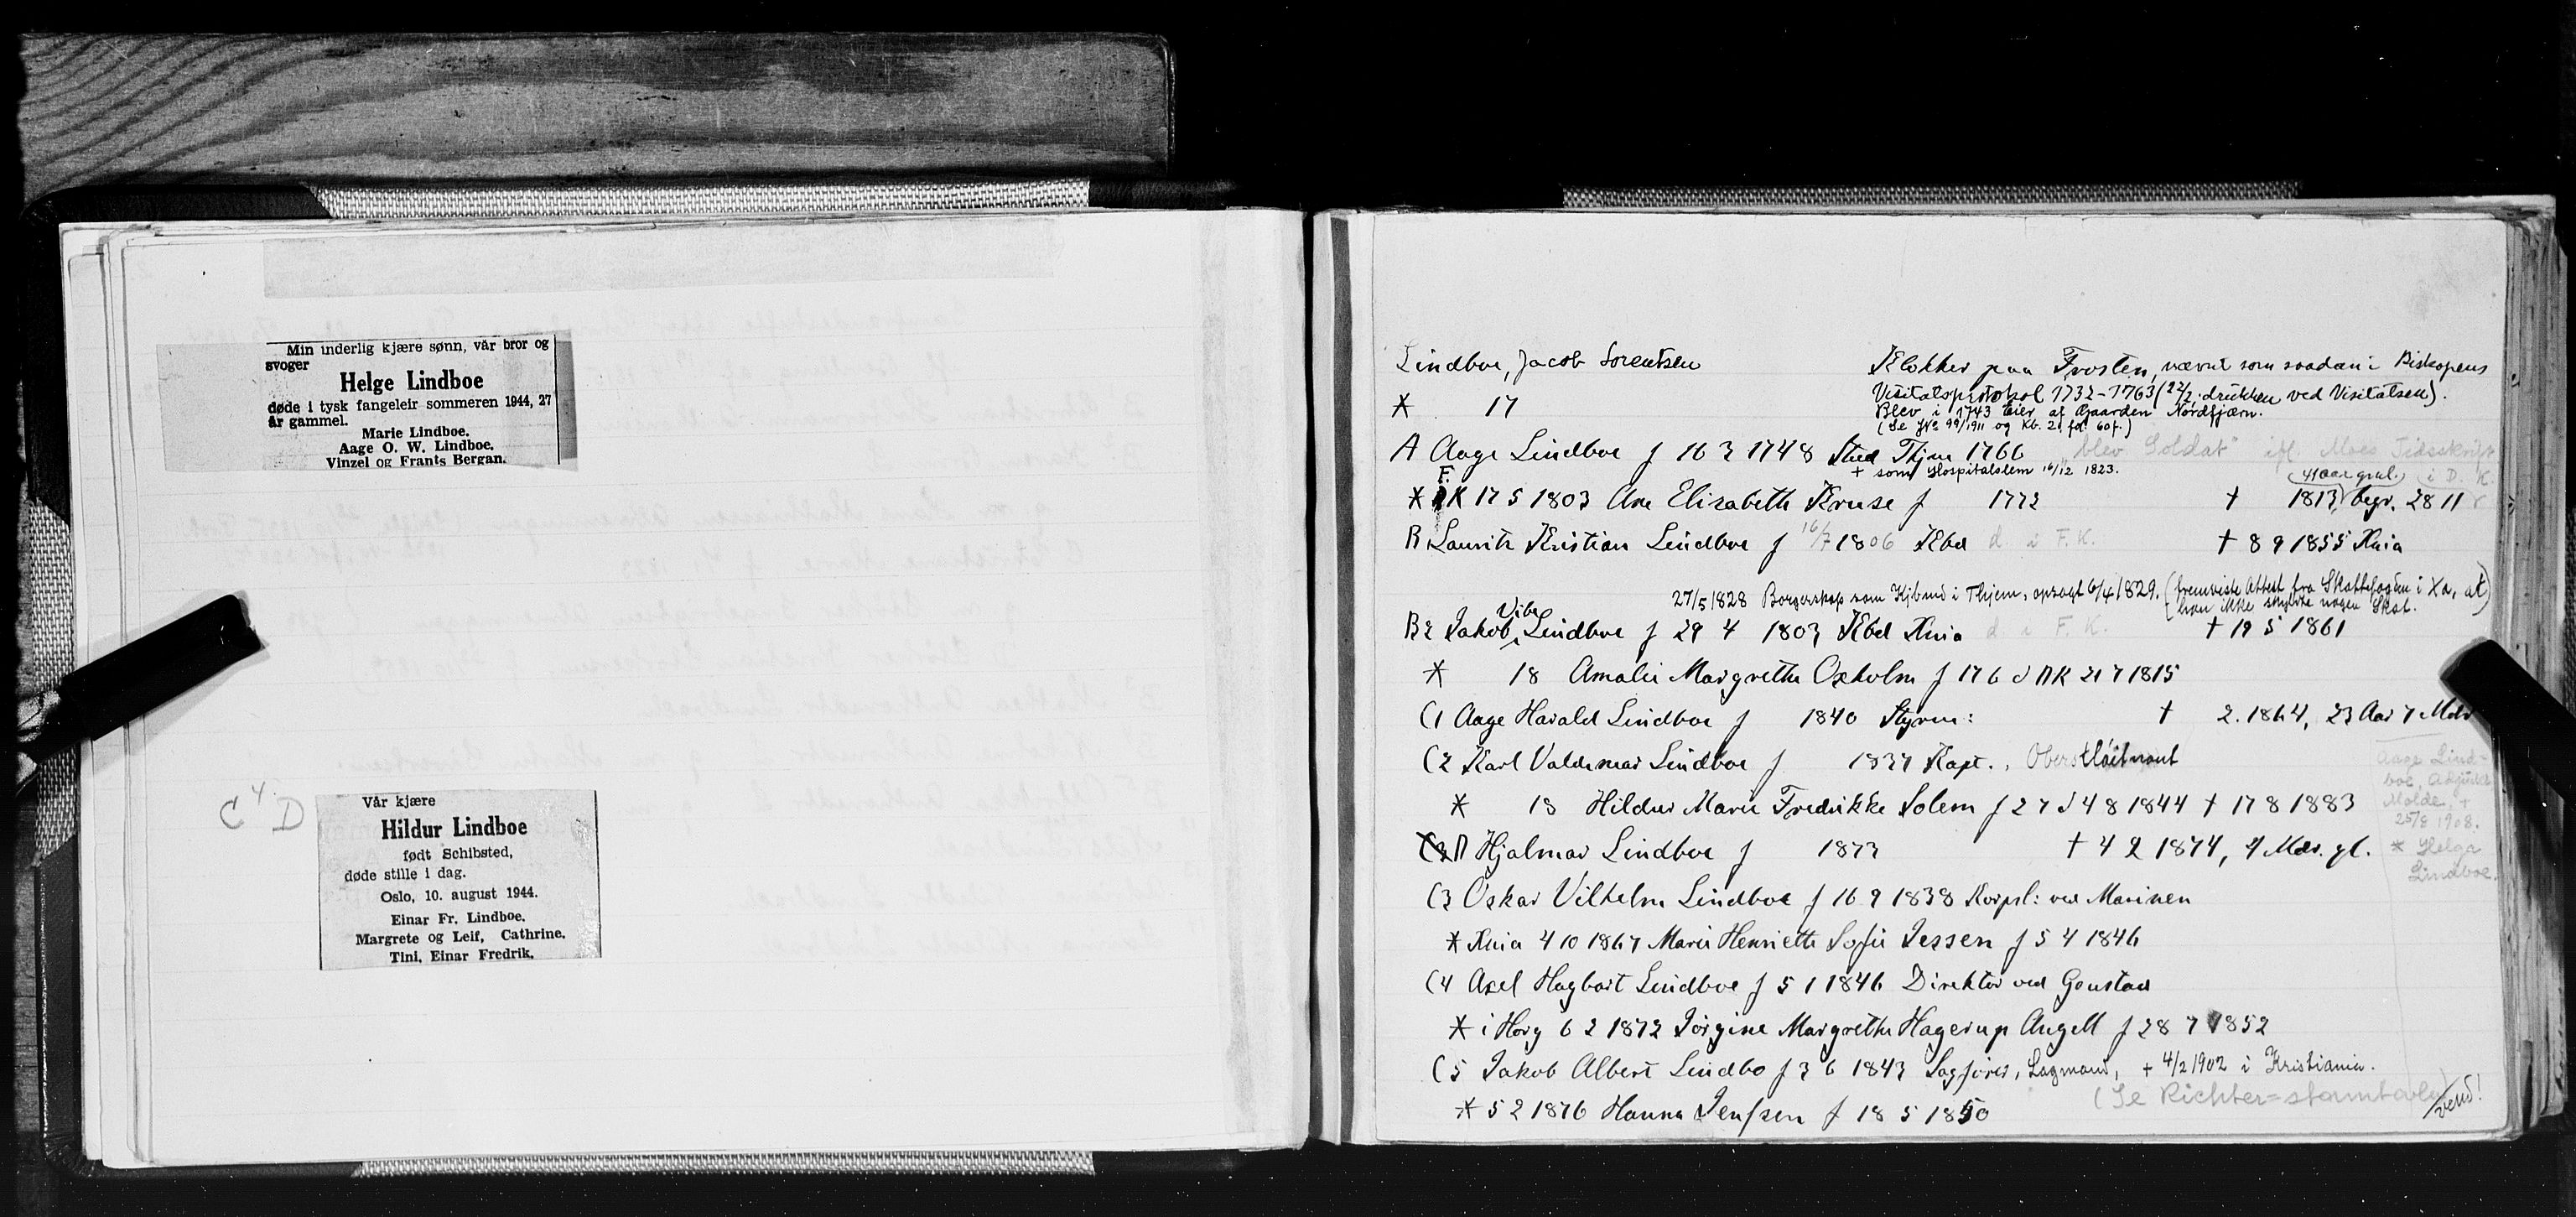 Min inderlig kjære sønn, vår bror og
svoger
Helge Lindboe
døde i tysk fangeleir sommeren 1944, 27
år gammel.
Marie Lindboe.
Aage O. W. Lindboe.
Vinzel og Frants Bergan.
C 4 D
Vår kjære
Hildur Lindboe
født Schibsted,
døde stille i dag.
Oslo, 10. august 1944.
Einar Fr. Lindboe.
Margrete og Leif, Cathrine,
Tini, Einar Fredrik.
Lindboe, Jacob Lorentsen
Klokker paa Frosten, nævnt som saadan i Biskopens
Visitatsprotokol 1732-1763 (22/2 drukken ved Visitatsen).
* 17
Blev i 1743 Eier af Gaarden Nordfjærn.
(Se JNo 99/1911 og Kb. 2, fol. 60 f.)
A Aage Lindboe f 16 3 1748 Stud Thjem 1766 "blev Soldat" ifl. Moes Tidsskrift
+ som Hospitalslem 16/12 1823.
(41 aar gml.) i D. K.
* F. K 17 5 1803 Ane Elisabeth Kruse f 1772 † 1813, begr. 28 11
B Lauritz Kristian Lindboe f 16/7 1806 Kbd d. i F. K. † 8 9 1855 Knia
27/5 1828 Borgerskap som Kjøbmd i Thjem, opsagt 6/4 1829. (fremviste Attest fra Skattefogden i Xa, at
han ikke skyldte nogen Skat.)
B2 Jakob Vibe Lindboe f 29 4 1803 Kbd Knia d. i F. K. † 19 5 1861
* 18 Amalie Margrethe Oxholm f 17 6 d DK 21 7 1815
C1 Aage Harald Lindboe f 1840 Styrm: † 2. 1864, 23 Aar 7 Mdr
C2 Karl Valdemar Lindboe f 1837 Kapt., Oberstløitnant
* 18 Hildur Marie Fredrikke Solem f 27 d 4 8 1844 † 17 8 1883
D Hjalmar Lindboe f 1873 † 4 2 1874, 4 Mdr. gl.
Aage Lind-
boe, Adjunkt
Molde, +
25/8 1908.
* Helga
Lindboe.
C3 Oskar Vilhelm Lindboe f 16 9 1838 Korpsl: ved Marinen
* Knia 4 10 1867 Marie Henriette Sofie Jessen f 5 4 1846
C4 Axel Hagbart Lindboe f 5 1 1846 Direktør ved Gaustad
* i Horg 6 2 1872 Jørgine Margrethe Hagerup Angell f 28 7 1852
C5 Jakob Albert Lindbo f 3 6 1843 Sagfører, Lagmand, + 4/2 1902 i Kristiania.
* 5 2 1876 Hanna Jenssen f 18 5 1850
(Se Richter=stamtavle)
vend!